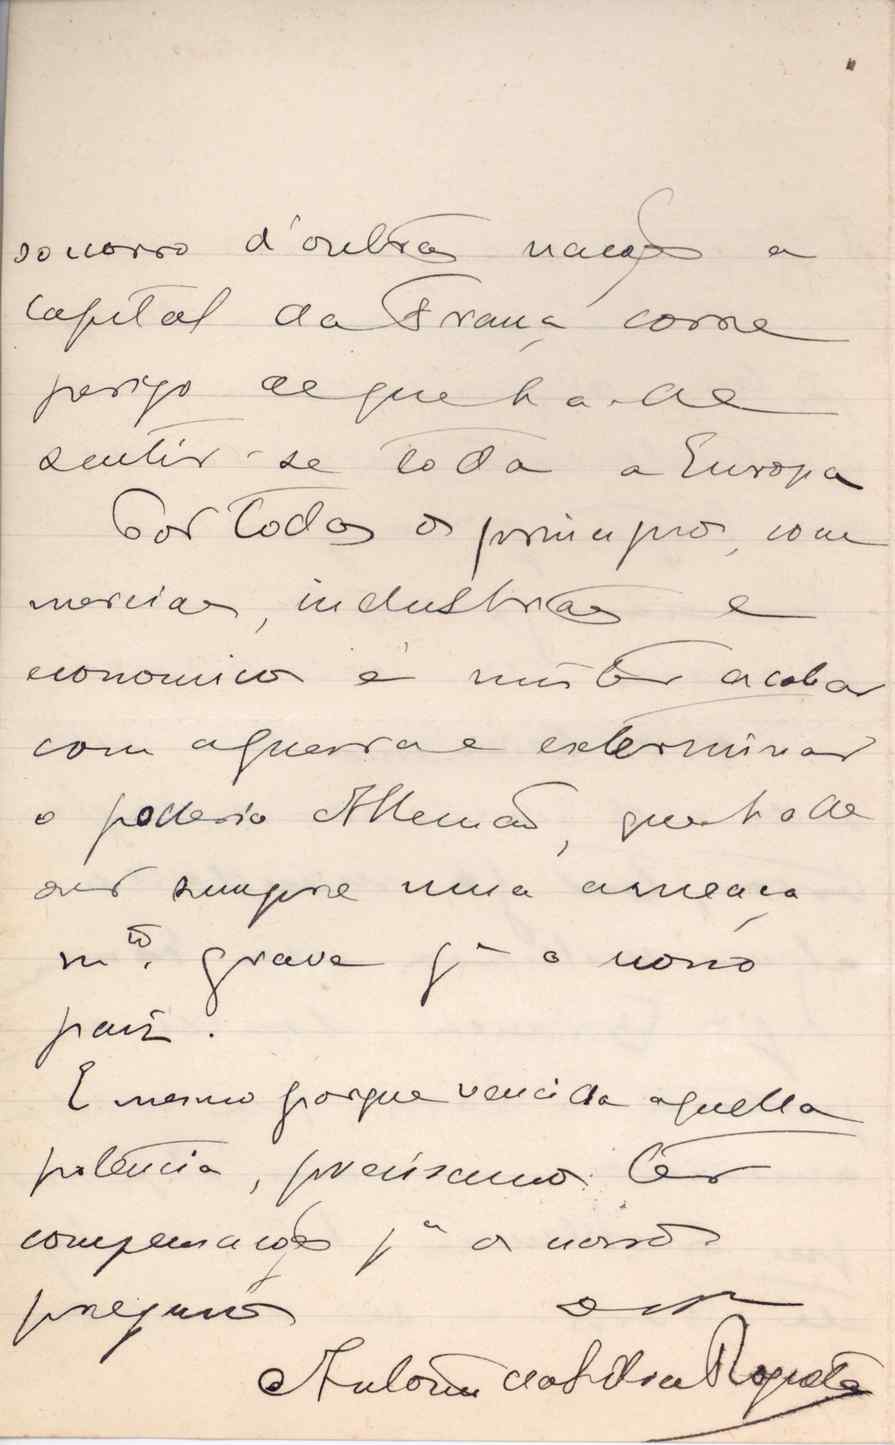 socorro d'outras nações a
capital da França corre
perigo de que ha-de
sentir-se toda a Europa
Por todos os principios, com
merciaes, industriaes e
economicos é mistér acabar
com a guerra e exterminar
o poderio Allemão, que ha de
ser sempre uma ameaça
mto. grave pa o nosso
paiz.
E mesmo porque vencida aquella
potencia, precisamos ter
compensações pa os nossos
prejuisos
Antonio da Silva